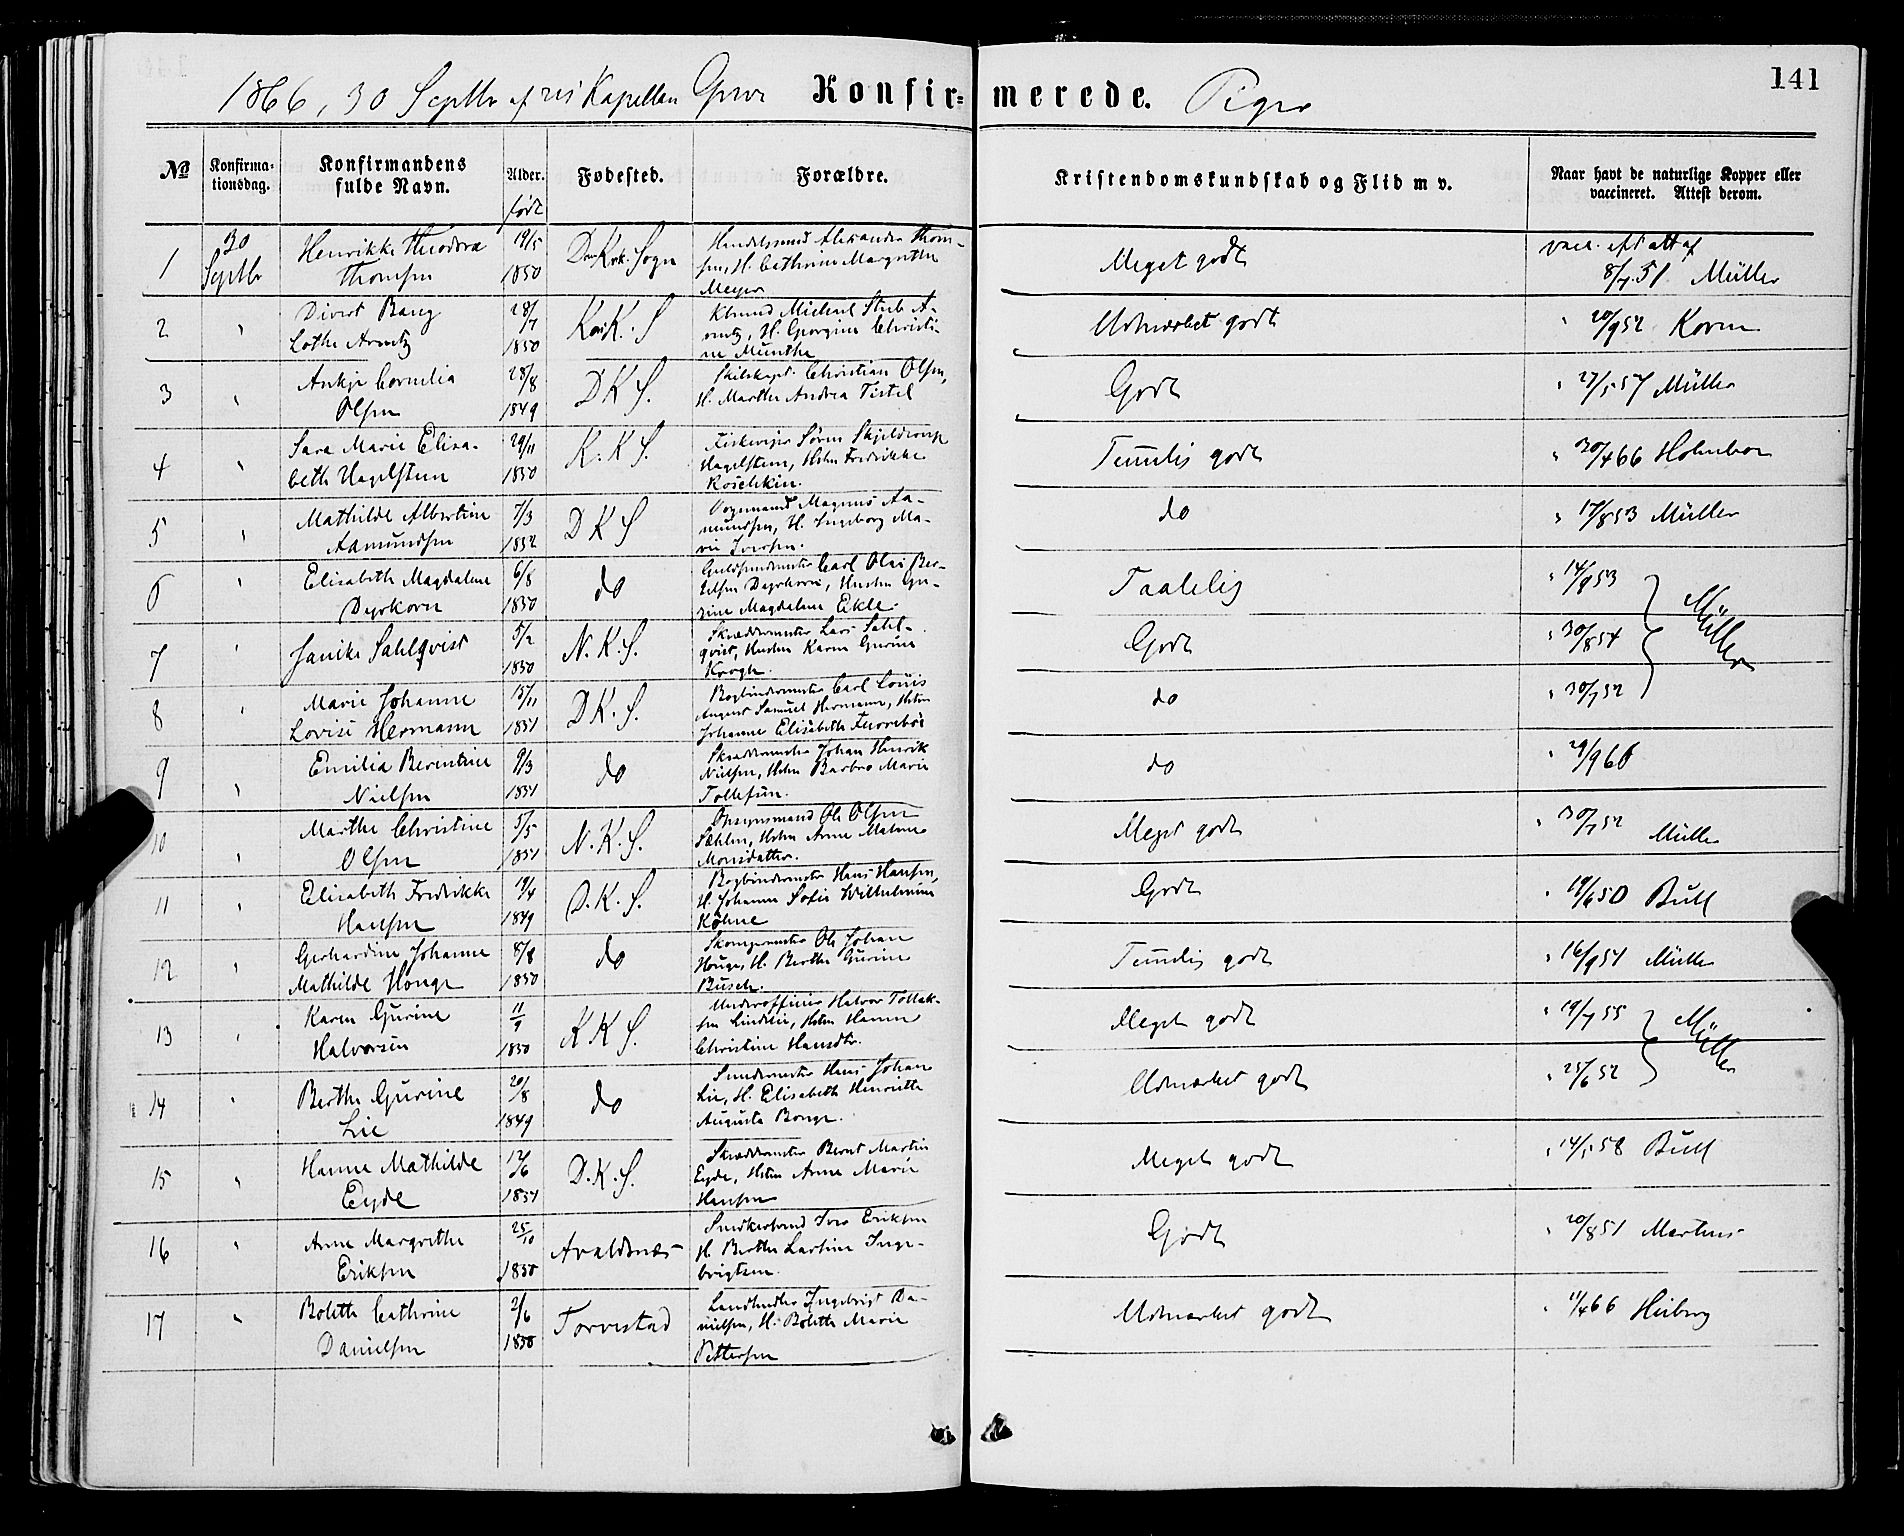 141
1866, 30 Septbr af res Kapellan Konfir= merede. Piger
№ Konfirma=tionsdag. Konfirmandens fulde Navn. Alder. født Fødested. Forældre. Kristendomskundskab og Flid m v. Naar havt de naturlige Kopper eller vaccineret. Attest derom.
1 30 Septbr Henrikke Theodora Thomsen 19/5 1850 DomKirk. Sogn Handelsmand Alexander Thomsen, H. Cathrine Margrethe Meyer Meget godt vacc. eft att af 8/7 51. Müller
2 " Divert Bang Lothe Arentz 28/7 1850 KorsK. S Michael Stub Arentz, H. Georgine Christine Munthe Udmærket godt " 20/9 52 Koren
3 " Ankje Cornelia Olsen 28/8 1849 D K S. Skibskapt. Christian Olsen, H. Marthe Andrea Tistel Godt " 27/5 57 Müller
4 " Sara Marie Elisabeth Hagelsteen 29/11 1850 K. K S. Søren Skjelderup Hagelsteen, Hstru Fredrikke Roschkin. Temmelig godt " 30/4 66 Holmboe
5 " Mathilde Albertine Aamundsen 7/3 1852 D K S Vognmand Magnus Aamundsen, H. Ingeborg Marie Iversen. do " 17/8 53 Müller
6 " Elisabeth Magdalene Dyrkorn 6/8 1850 do Guldsmedmester Carl Olai Bertelsen Dyrkorn, Hustru Gurine Magdalene Ekle. Taalelig " 14/9 53
7 " Janike Sahlqvist 5/2 1850 N. K. S. Skræddermester Lars Sahlqvist, Hustru Karen Gurine Krogh. Godt " 30/8 54 Müller
8 " Marie Johanne Lovise Hermann 15/11 1851 D K. S. Bogbindermester Carl Louis August Samuel Hermann, Hstru Johanne Elisabeth do " 30/7 52
9 " Emilia Berentine Nielsen 9/3 1851 do Skræddermester Johan Henrik Nielsen, Hstru Barbro Marie Tollefsen. do " 29/9 66
10 " Marthe Christine Olsen 5/5 1851 N. K. S. Opsynsmand Ole Olsen Sæhlen, Hstru Anne Malene Monsdatter. Meget godt " 30/7 52 Müller
11 " Elisabeth Fredrikke Hansen 19/4 1849 D. K. S. Bogbindermester Hans Hansen, H. Johanne Sofie Wilhelmine Köhne Godt " 19/6 50 Bull
12 " Gerhardine Johanne Mathilde Houge 8/8 1850 do Skomagermester Ole Johan Houge, H. Berthe Gurine Busch. Temmelig godt " 16/9 51 Müller
13 " Karen Gurine Halvorsen 11/9 1850 K K S. Underofficier Halvor Tollaksen Lindlie, Hstru Hanne Christine Hansdtr. Meget godt " 19/7 55 Müller
14 " Berthe Gurine Lie 20/8 1849 do Smedmester Hans Johan Lie, H. Elisabeth Henriette Augusta Bonge. Udmærket godt " 25/6 52
15 " Hanne Mathilde Eyde 12/6 1851 D. K. S. Skræddermester Bernt Martin Eyde, Hstru Anne Marie Hansen Meget godt " 14/1 58 Bull
16 " Anne Margrethe Eriksen 25/10 1850 Avaldsnæs Snedkersvend Iver Eriksen H. Berthe Lartine Ingebrigtsen Godt " 20/8 51 Martens
17 " Bolette Cathrine Danielsen 2/6 1850 Torvestad Landhandler Ingebrigt Danielsen, H. Bolette Marie Pettersen Udmærket godt " 11/4 66 Hiberg